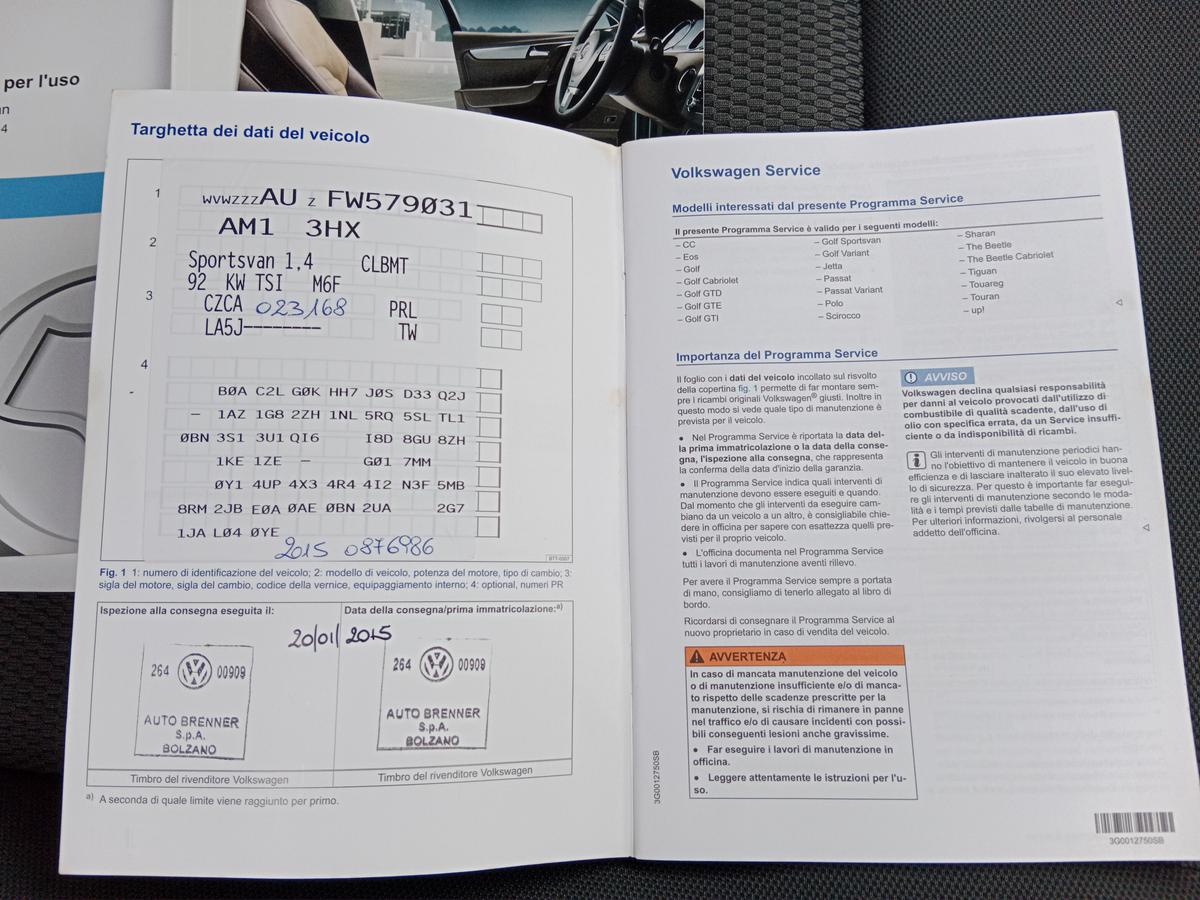 per l'uso
4
Targhetta dei dati del veicolo
1
WVWZZZAU Z FW579031
AM1 3HX
2
Sportsvan 1,4 CLBMT
92 KW TSI M6F
3
CZCA 023168 PRL
LA5J-------- TW
4
B0A C2L G0K HH7 J0S D33 Q2J
– 1AZ 1G8 2ZH 1NL 5RQ 5SL TL1
0BN 3S1 3U1 QI6 I8D 8GU 8ZH
1KE 1ZE – G01 7MM
0Y1 4UP 4X3 4R4 4I2 N3F 5MB
8RM 2JB E0A 0AE 0BN 2UA 2G7
1JA L04 0YE
2015 0876986
Fig. 1 1: numero di identificazione del veicolo; 2: modello di veicolo, potenza del motore, tipo di cambio; 3:
sigla del motore, sigla del cambio, codice della vernice, equipaggiamento interno; 4: optional, numeri PR
Ispezione alla consegna eseguita il:
Data della consegna/prima immatricolazione:a)
20/01/2015
264 00909
AUTO BRENNER
S.p.A.
BOLZANO
264 00909
AUTO BRENNER
S.p.A.
BOLZANO
Timbro del rivenditore Volkswagen
Timbro del rivenditore Volkswagen
a) A seconda di quale limite viene raggiunto per primo.
Volkswagen Service
Modelli interessati dal presente Programma Service
Il presente Programma Service è valido per i seguenti modelli:
– CC
– Eos
– Golf
– Golf Cabriolet
– Golf GTD
– Golf GTE
– Golf GTI
– Golf Sportsvan
– Golf Variant
– Jetta
– Passat
– Passat Variant
– Polo
– Scirocco
– Sharan
– The Beetle
– The Beetle Cabriolet
– Tiguan
– Touareg
– Touran
– up!
Importanza del Programma Service
Il foglio con i dati del veicolo incollato sul risvolto
della copertina fig. 1 permette di far montare sem-
pre i ricambi originali Volkswagen® giusti. Inoltre in
questo modo si vede quale tipo di manutenzione è
prevista per il veicolo.
● Nel Programma Service è riportata la data del-
la prima immatricolazione o la data della conse-
gna, l'ispezione alla consegna, che rappresenta
la conferma della data d'inizio della garanzia.
● Il Programma Service indica quali interventi di
manutenzione devono essere eseguiti e quando.
Dal momento che gli interventi da eseguire cam-
biano da un veicolo a un altro, è consigliabile chie-
dere in officina per sapere con esattezza quelli pre-
visti per il proprio veicolo.
● L'officina documenta nel Programma Service
tutti i lavori di manutenzione aventi rilievo.
Per avere il Programma Service sempre a portata
di mano, consigliamo di tenerlo allegato al libro di
bordo.
Ricordarsi di consegnare il Programma Service al
nuovo proprietario in caso di vendita del veicolo.
AVVERTENZA
In caso di mancata manutenzione del veicolo
o di manutenzione insufficiente e/o di manca-
to rispetto delle scadenze prescritte per la
manutenzione, si rischia di rimanere in panne
nel traffico e/o di causare incidenti con possi-
bili conseguenti lesioni anche gravissime.
● Far eseguire i lavori di manutenzione in
officina.
● Leggere attentamente le istruzioni per l'u-
so.
AVVISO
Volkswagen declina qualsiasi responsabilità
per danni al veicolo provocati dall'utilizzo di
combustibile di qualità scadente, dall'uso di
olio con specifica errata, da un Service insuffi-
ciente o da indisponibilità di ricambi.
Gli interventi di manutenzione periodici han-
no l'obiettivo di mantenere il veicolo in buona
efficienza e di lasciare inalterato il suo elevato livel-
lo di sicurezza. Per questo è importante far esegui-
re gli interventi di manutenzione secondo le moda-
lità e i tempi previsti dalle tabelle di manutenzione.
Per ulteriori informazioni, rivolgersi al personale
addetto dell'officina.
3G0012750SB
3G0012750SB